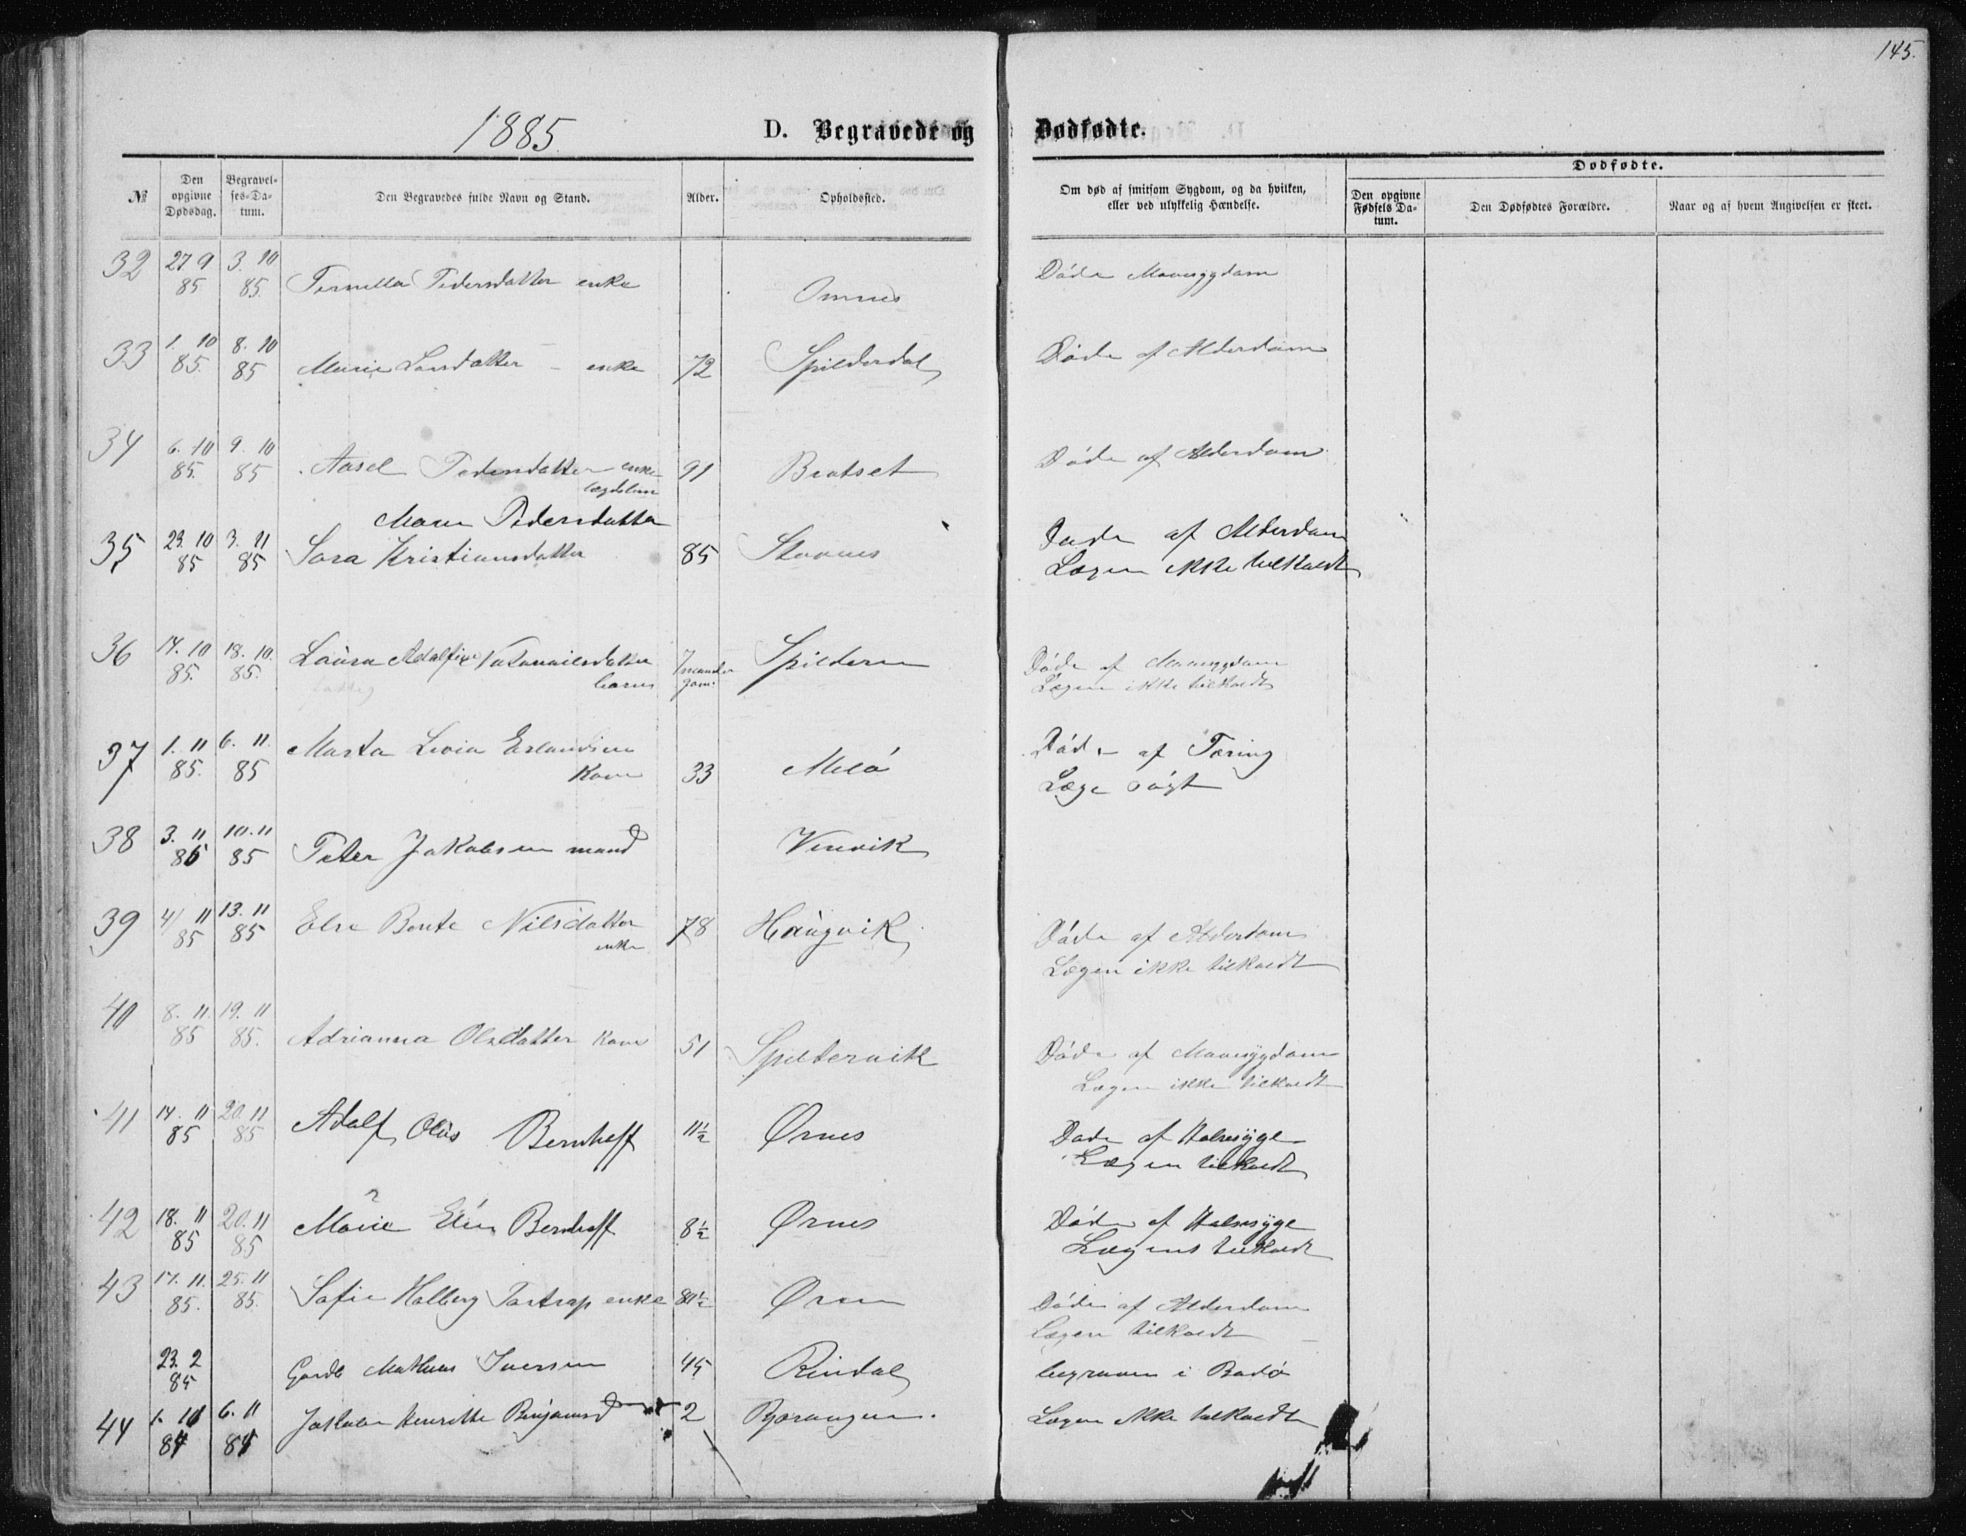 145.
1885
D. Begravede og Dødfødte.
№ Den opgivne Dødsdag. Begravelses-Datum. Den Begravedes fulde Navn og Stand. Alder. Opholdssted. Om død af smitsom Sygdom, og da hvilken, eller ved ulykkelig Hændelse. Dødfødte.
Den opgivne Fødsels Datum. Den Dødfødtes Forældre. Naar og af hvem Angivelsen er skeet.
32 27 9 85 3. 10 85. Pernella Pedersdatter enke Omnes Døde Mavesygdom
33 1. 10 85. 8. 10 85 Marie Larsdatter - enke 72 Spilderdal Døde af Alderdom
34 6. 10 85. 9. 10 85 Aasel Pedersdatter enke 91 Bratset Døde af Alderdom
Maren Pedersdatter
35 23. 10 85 3. 11 85 Sara Kristiansdatter 85 Stavnes Døde af Alderdom
Lægen ikke tilkaldt
36 14. 10 85. 18. 10. 85. Laura Adolfine Natanaielsdatter barn 7 maander gam: Spilderen Døde af Mavesygdom
fattig Lægen ikke tilkaldt
37 1. 11 85. 6. 11. 85 Marta Livia Erlandsen Kone 33 Melø Døde af Tæring
Læge søgt
38 3. 11 85 10. 11 85 Peter Jakobsen mand Venvik
39 4/ 11 85 13. 11 85 Else Bente Nilsdatter enke 78 Haugvik Døde af Alderdom
Lægen ikke tilkaldt
40 8. 11. 85 19. 11 85. Adrianna Olsdatter Kone 51 Spildervik Døde af Mavesygdom
Lægen ikke tilkaldt
41 14. 11 85 20. 11 85 Adolf Olus Bernhoff 11½ Ørnes Døde af Halssyge
Lægen tilkaldt
42 18. 11 85 20. 11 85 Marie Elin Bernhoff 8½ Ørnes Døde af Halssyge
Lægens tilkaldt
43 17. 11. 85. 25. 11 85. Sofie Holberg Tostrup enke 80½ Ørnes Døde af Alderdom
Lægen tilkaldt
23. 2 85 Mathias Iversen 45 Rindal begraven i Bodø
44 1. 11 84 6. 11 84 Jakobine Henrikke Benjamsd 2 Bjærangen. Lægen ikke tilkaldt